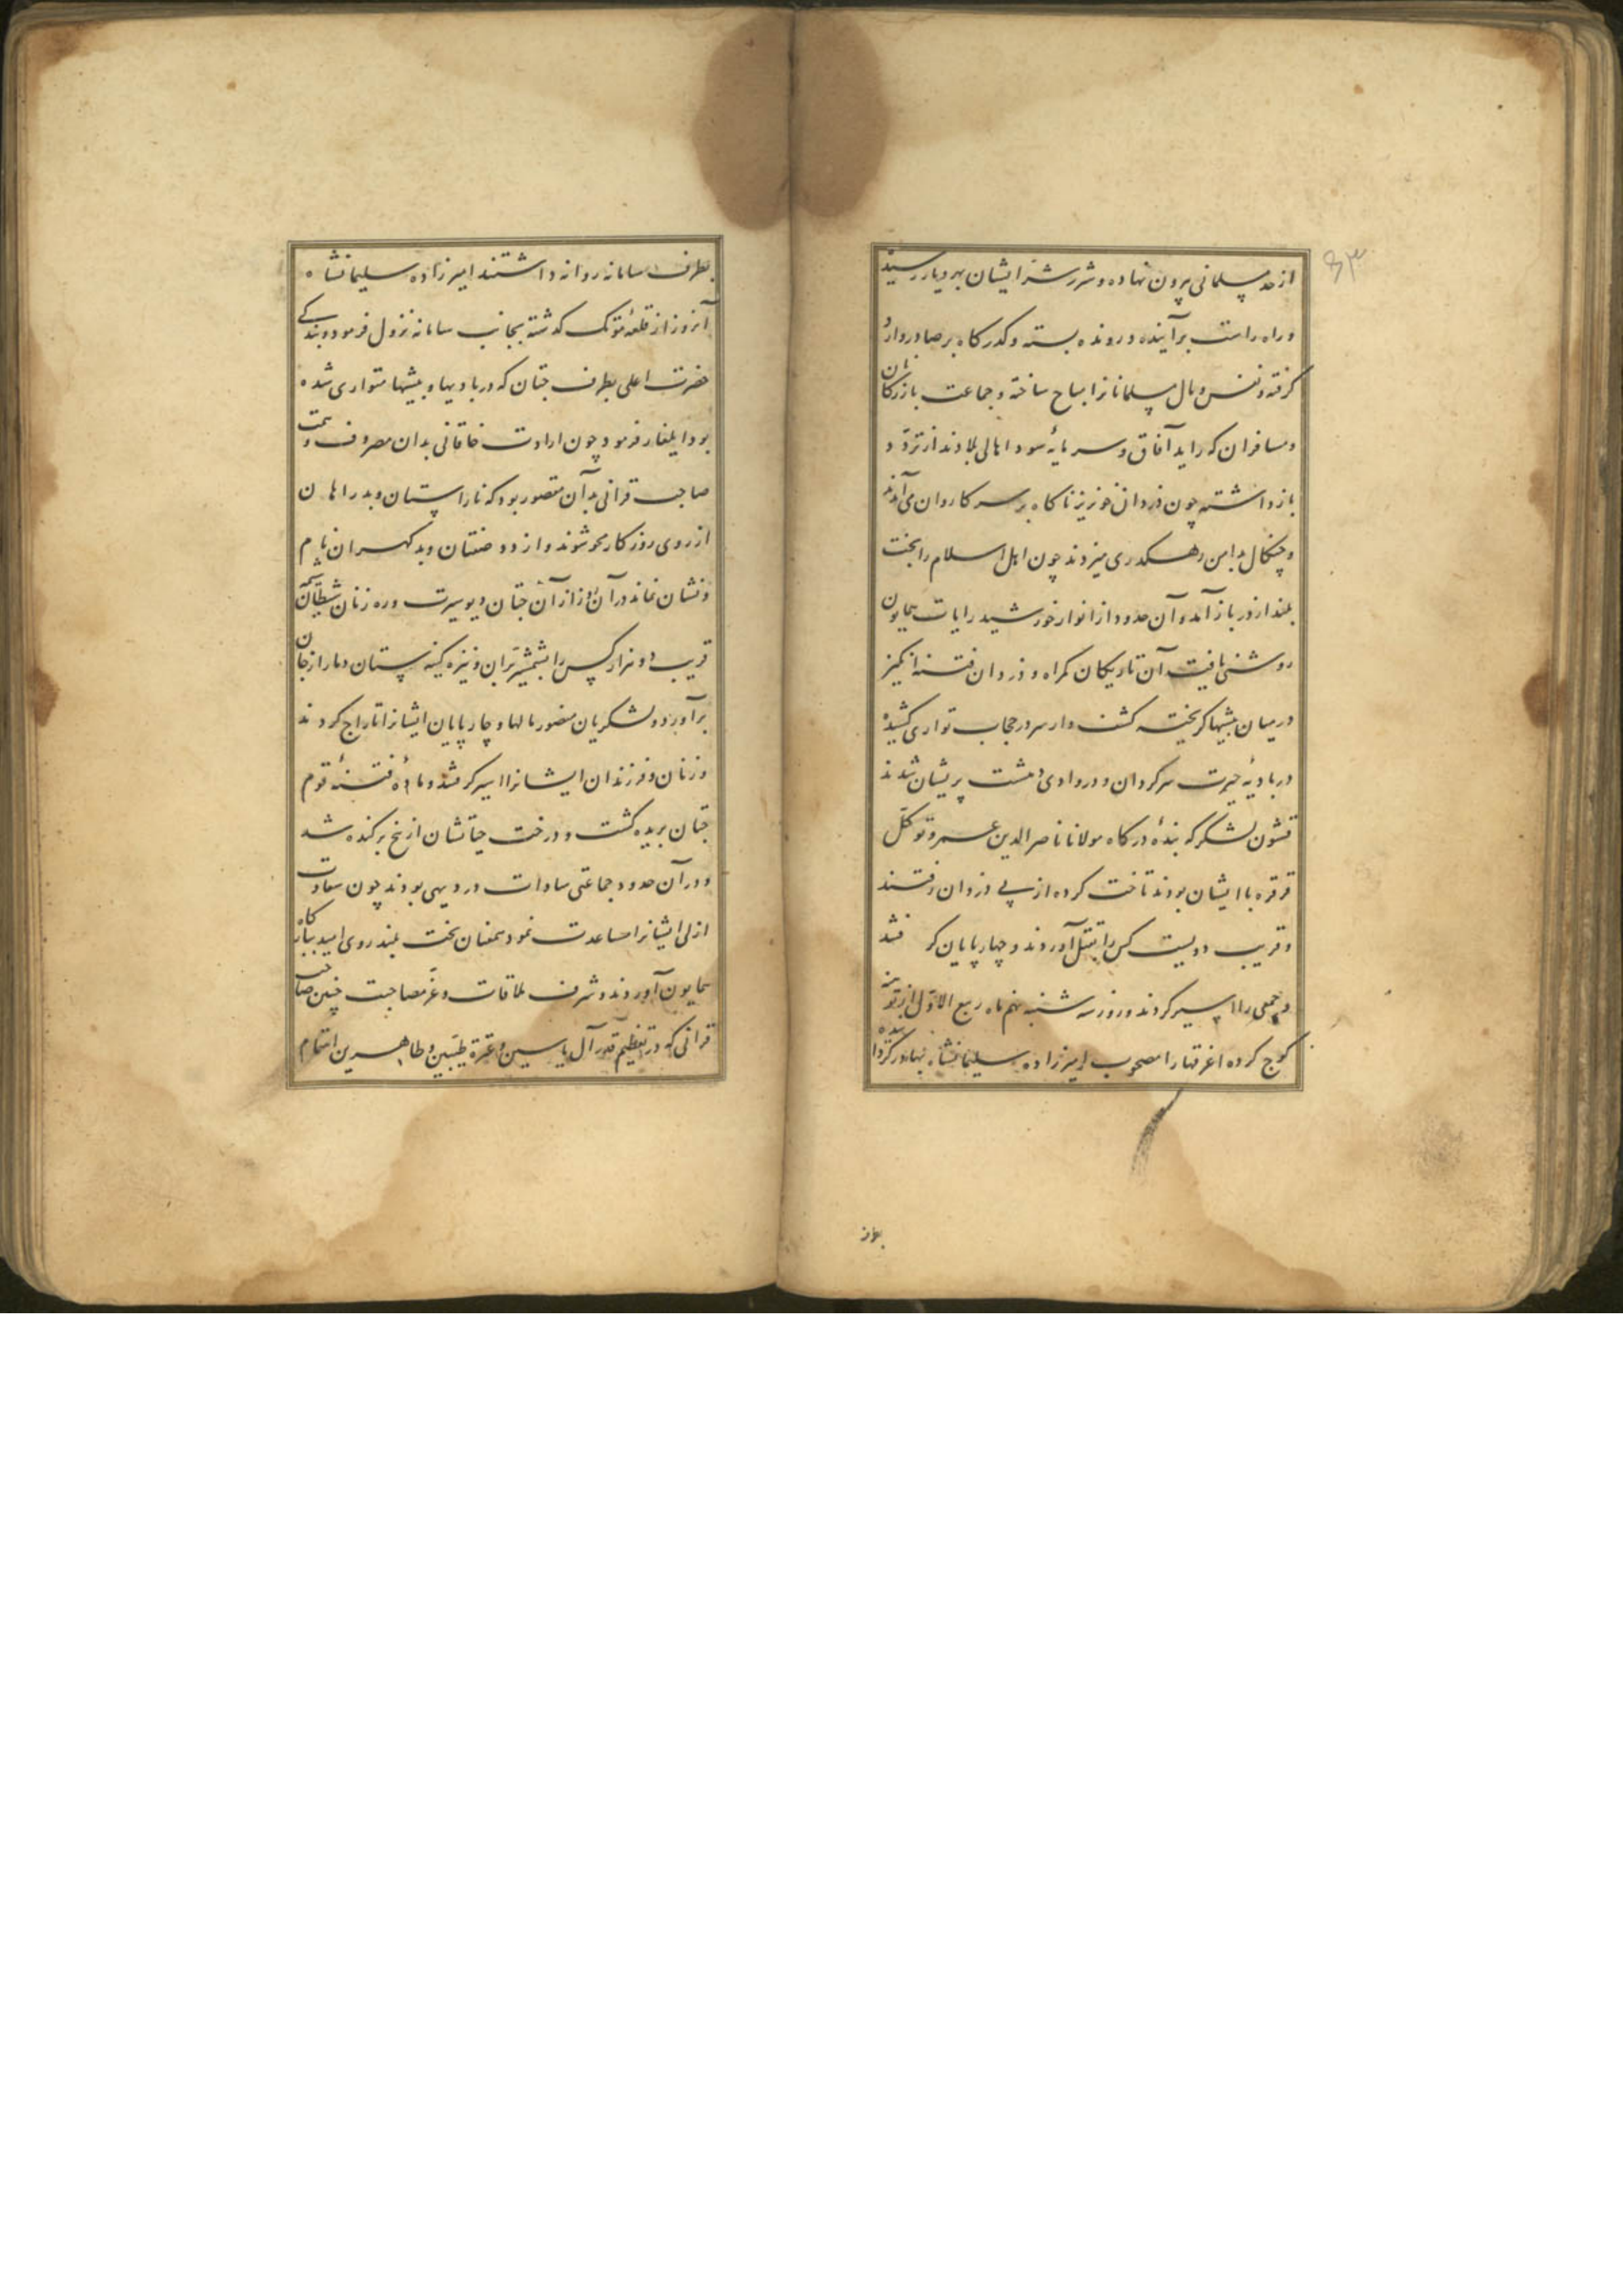 ۶۳
از حد مسلمانی بیرون نهاده و شرر شر ایشان بهر دیار رسیده
و راه راست بر آینده و رونده بسته و کذرکاه بر صادر و وارد
کرفته و نفس و مال مسلمانانرا مباح ساخته و جماعت بازرکانان
و مسافران که راید آفاق و سرمایهٔ سود اهالی بلادند از تردّد
باز داشته چون دزدان خونریز ناکاه بر سر کاروان می‌آمدند
و چنکال بدامن رهکدری میزدند چون اهل اسلام را بخت
بلند از در باز آمد و آن حدود از انوار خورشید رایات همایون
روشنی یافت آن تاریکان کمراه و دزدان فتنه انکیز
در میان بیشها کریخته کشف وار سر در حجاب تواری کشیده
در بادیهٔ حیرت سرکردان و در وادی دهشت پریشان شدند
قشون لشکر که بندهٔ درکاه مولانا ناصر الدین عمر و توکّل
قرقره با ایشان بودند تاخت کرده از پی دزدان رفتند
و قریب دویست کس را بقتل آوردند و چهارپایان کرفتند
و جمعی را اسیر کردند و روز سه شنبه نهم ماه ربیع الاوّل از تونه
کوچ کرده اغرقها را مصحوب امیرزاده سلیمانشاه بهادر کردانیده
بطرف
بطرف سامانه روانه داشتند امیرزاده سلیمانشاه
آنروز از قلعهٔ مونک کذشته بجانب سامانه نزول فرمود و بندکی
حضرت اعلی بطرف جتان که در بادیها و بیشها متواری شده
بودند ایلغار فرمود چون ارادت خاقانی بدان مصروف و همت
صاحب قرانی بدآن مقصور بود که ناراستان و بدراهان
از روی روزکار محو شوند و از دد صفتان و بدکهران نام
و نشان نماند در آن روز از آن جتان دیوسیرت و ره زنان شیطان منش
قریب دو هزار کس را بشمشیر بران و نیزه کینه ستان دمار از جان
برآورد و لشکریان منصور مالها و چارپایان ایشانرا تاراج کردند
و زنان و فرزندان ایشانرا اسیر کرفتند و مادهٔ فتنهٔ قوم
جتان بریده کشت و درخت حیاتشان از بیخ برکنده شد
و در آن حدود جماعتی سادات در دیهی بودند چون سعادت
ازلی ایشانرا مساعدت نمود بهمعنان بخت بلند روی امید ببارکاه
همایون آوردند و شرف ملاقات و عزّ مصاحبت چنین صاحب
قرانی که در تعظیم قدر آل یاسین و عترة طیّبین و طاهرین اهتمام